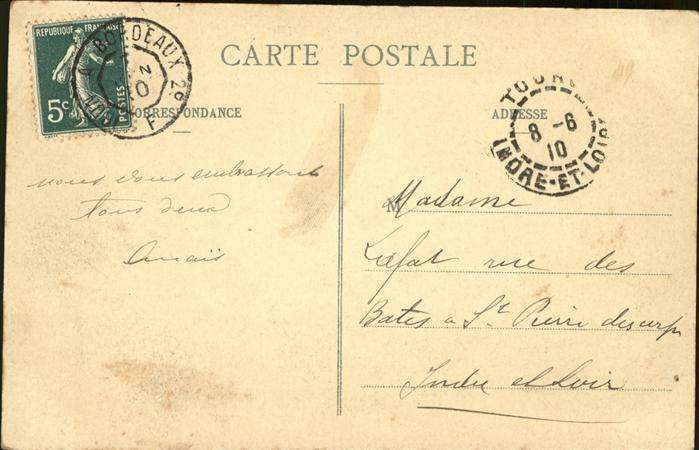 RÉPUBLIQUE FRANÇAISE
5c
POSTES
BORDEAUX 2°
CARTE POSTALE
CORRESPONDANCE
ADRESSE
TOURS
8 -6
10
INDRE-ET-LOIRE
nous vous embrassons
tous deux
Anaïs
M Madame
Lafat rue des
Bates a St Pierre descorps
Indre et Loir